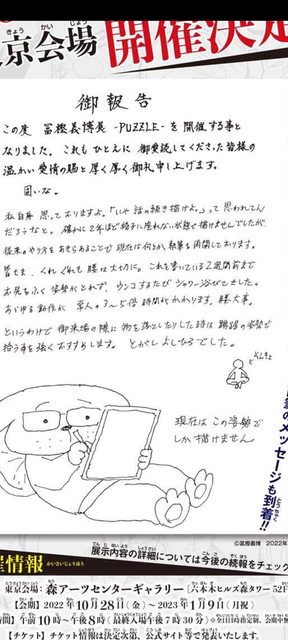 京会場
きょうかいじょう
開催決定
御報告
この度 冨樫義博展 -PUZZLE- を開催する事と
なりました。これもひとえに御愛読してくださった皆様の
温かい愛情の賜と厚く厚く御礼申し上げます。
固いな。
私自身 思っておりますよ。「いや 話の続き描けよ。」って思われてん
だろうなと。確かに2年ほど椅子に座れない状態で描けませんでしたが、
従来のやり方をあきらめることで現在は何とか執筆を再開しております。
皆さま、くれぐれも腰は大切に。これを書いている2週間前まで
お尻をふく姿勢がとれず、ウンコするたびシャワー浴びてました。
あらゆる動作が常人の3〜5倍時間がかかります。腰大事。
というわけで御来場の際に物を落としたりした時は蹲踞の姿勢で
拾う事を強くおすすめします。とがしよしひろでした。
そんきょ
現在はこの姿勢で
しか描けません。
のメッセージも到着!!
©冨樫義博 2022年
展示内容の詳細については今後の続報をチェック
催情報
かいさいじょうほう
東京会場:森アーツセンターギャラリー(六本木ヒルズ森タワー52F
【会期】2022年10月28日(金)〜2023年1月9日(月祝)
時間】午前10時〜午後8時(最終入場午後7時30分)※全日日時指定制、
【チケット】チケット情報は決定次第、公式サイト等で発表いたします。